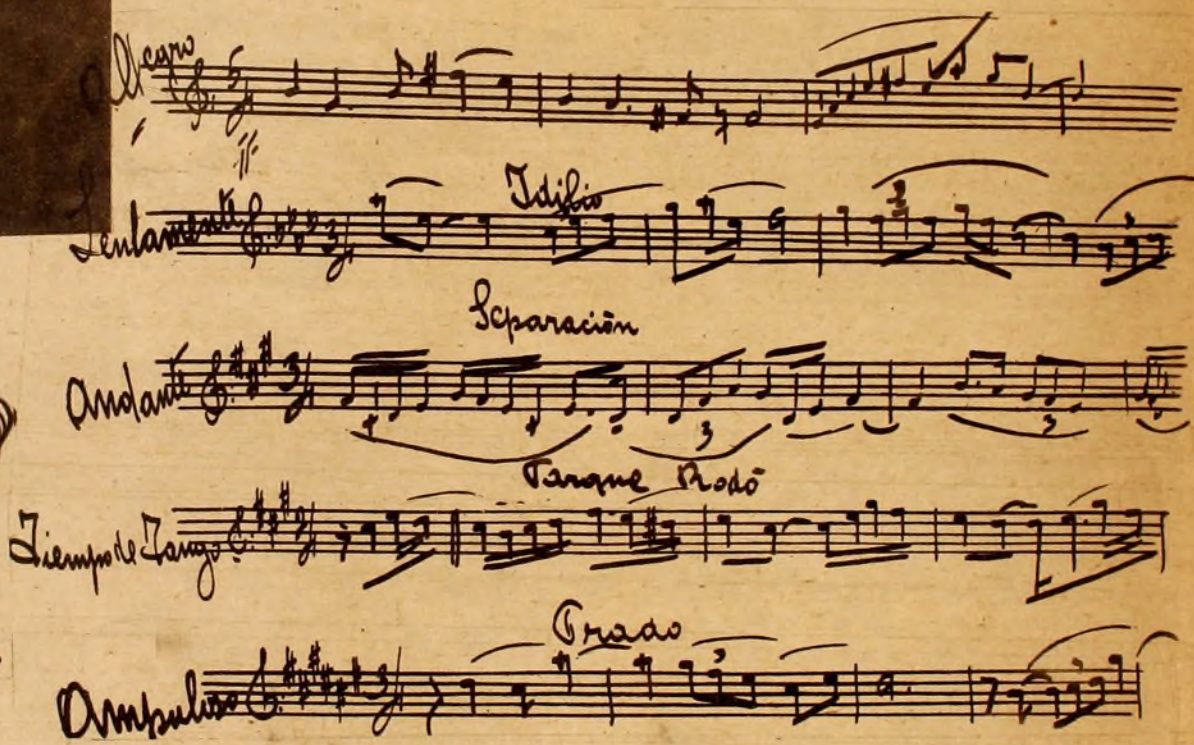 Allegro
ff
Idilio
Lentamente
3
Separación
Andante
3 3
Parque Rodó
Tiempo de Tango
Prado
Ampuloso
3 3